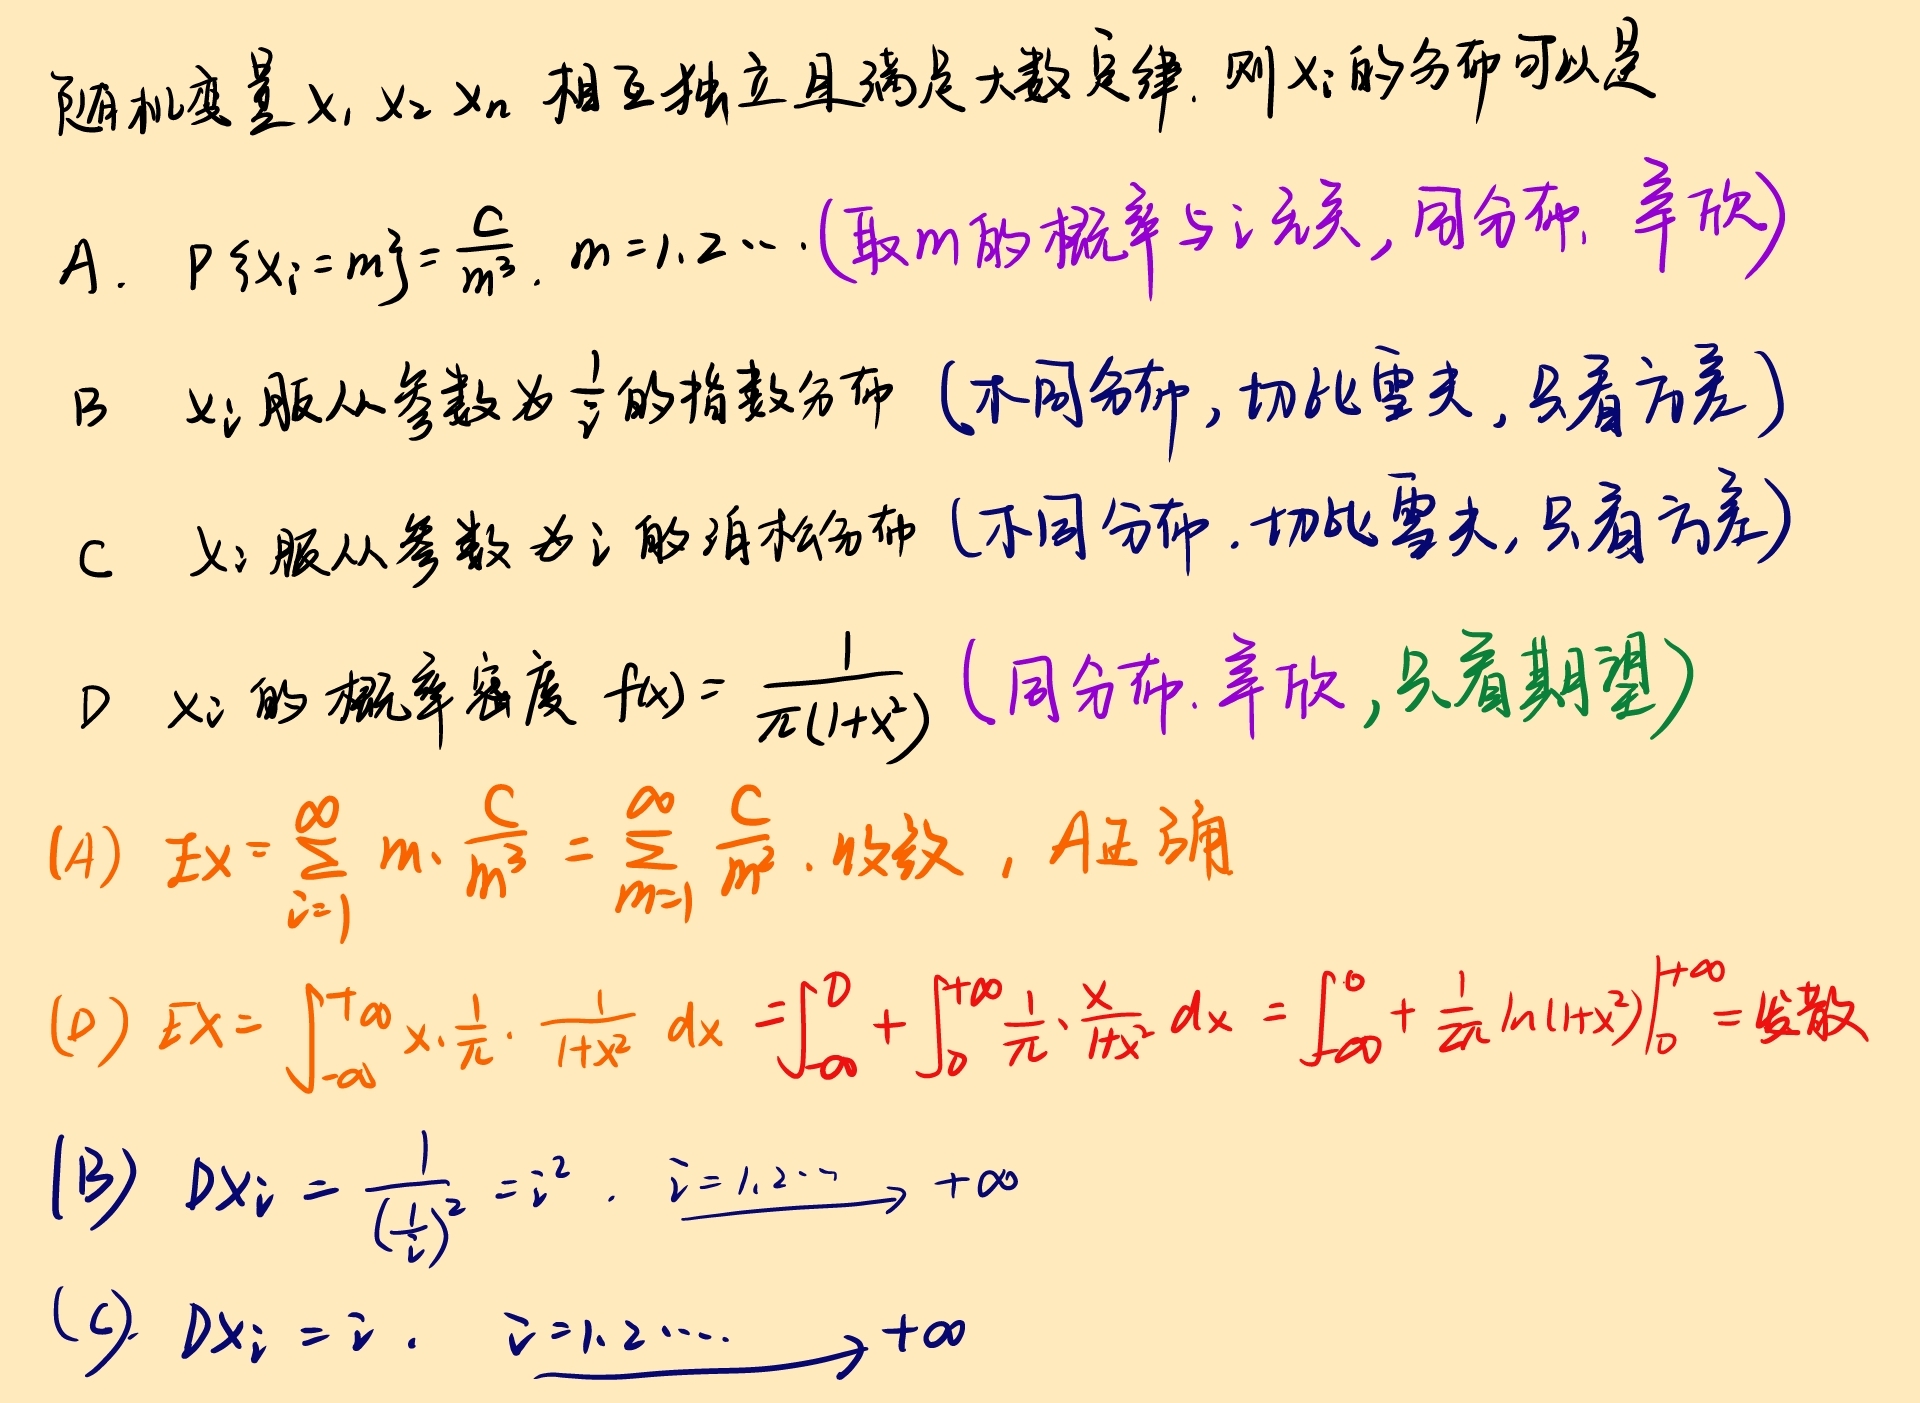 随机变量 X₁ X₂ Xₙ 相互独立且满足大数定律. 则 Xᵢ 的分布可以是
A. P{Xᵢ=m}=C/m³. m=1.2….(取m的概率与i无关,同分布. 辛欣)
B Xᵢ 服从参数为 1/i 的指数分布 (不同分布,切比雪夫,只看方差)
C Xᵢ 服从参数为 i 的泊松分布 (不同分布.切比雪夫,只看方差)
D Xᵢ 的概率密度 f(x)=1/(π(1+x²)) (同分布.辛欣,只看期望)
(A) EX=∑_{i=1}^{∞} m·C/m³=∑_{m=1}^{∞} C/m².收敛,A正确
(D) EX=∫_{-∞}^{+∞} x·1/π·1/(1+x²) dx=∫_{-∞}^{0}+∫_{0}^{+∞} 1/π·x/(1+x²) dx=∫_{-∞}^{0}+1/(2π) ln(1+x²)|_{0}^{+∞}=发散
(B) DXᵢ=1/(1/i)²=i². i=1.2… → +∞
(C). DXᵢ=i. i=1.2…. → +∞